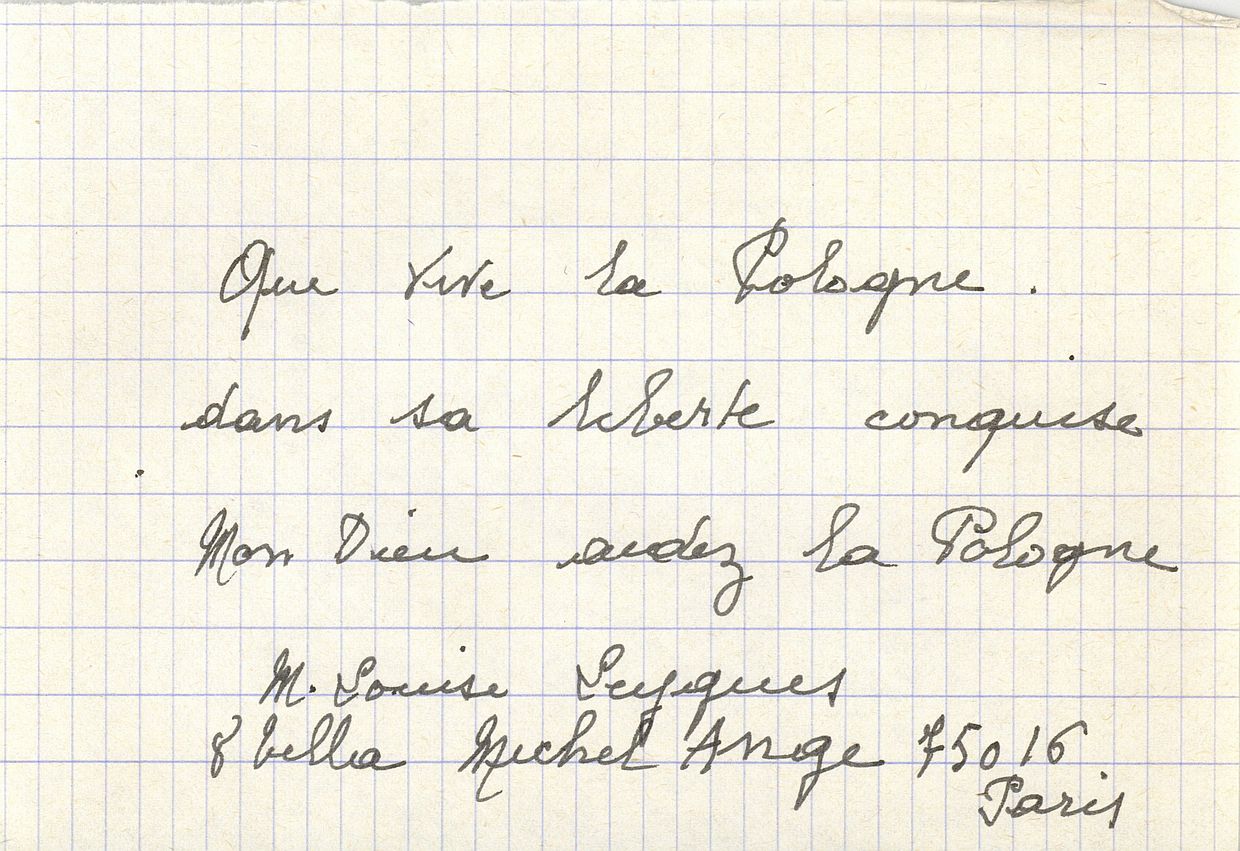 Que vive la Pologne.
dans sa liberte conquise
Mon Dieu aidez la Pologne
M. Louise Leygues
8 villa Michel Ange 75016
Paris